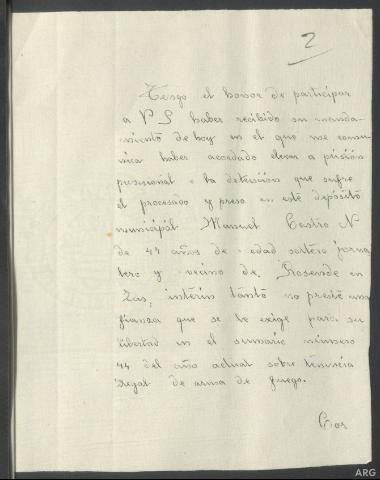 2
Tengo el honor de participar
a V S haber recibido su manda-
miento de hoy en el que me comu-
nica haber acordado elevar a prision
provisional la detencion que sufre
el procesado y preso en este depósito
municipal Manuel Castro N
de 44 años de edad soltero jorna-
lero y vecino de Rosende en
Zas, interin tanto no preste una
fianza que se le exige para su
libertad en el sumario número
44 del año actual sobre tenencia
ilegal de arma de fuego.
Cor
ARG